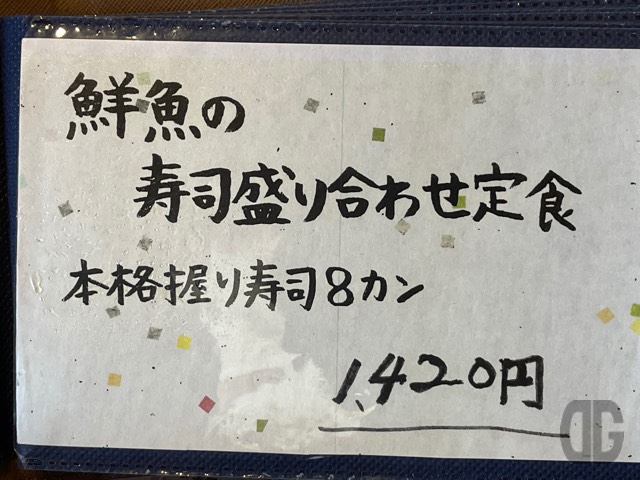 鮮魚の
寿司盛り合わせ定食
本格握り寿司8カン
1,420円
DG